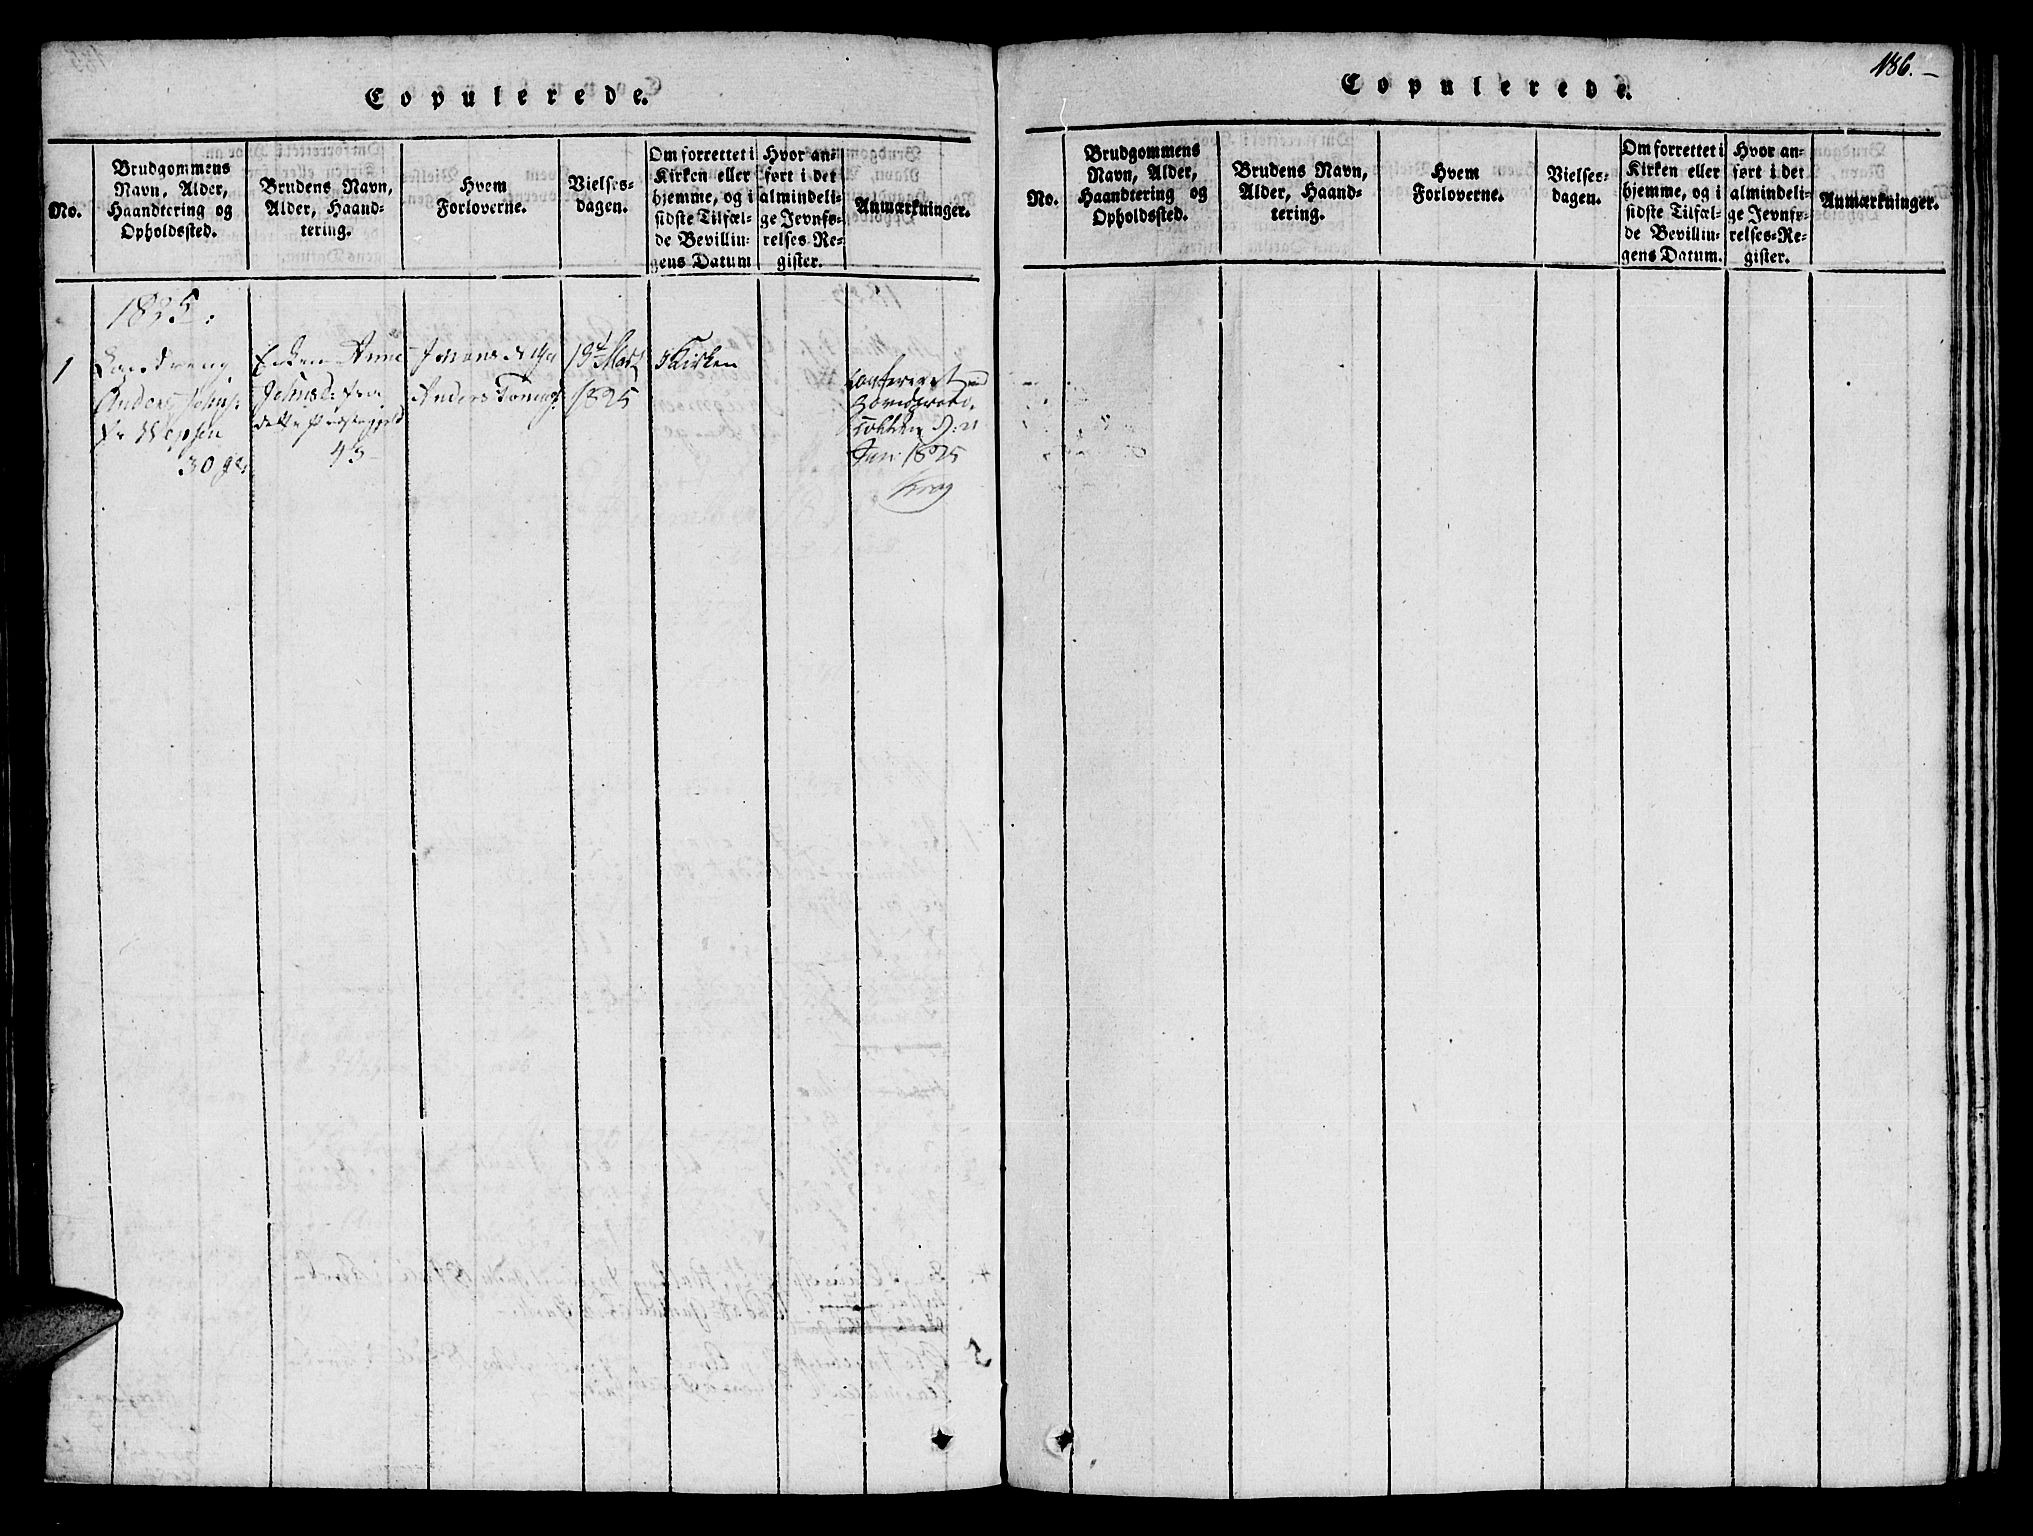 Copulerede.
No.
Brudgommens
Navn, Alder,
Haandtering og
Opholdssted.
Brudens Navn,
Alder, Haand-
tering.
Hvem
Forloverne.
Vielses-
dagen.
Om forrettet i
Kirken eller
hjemme, og i
sidste Tilfæl-
de Bevillin-
gens Datum
Hvor an-
ført i det
almindeli-
ge Jevnfø-
relses-Re-
gister.
Anmærkninger.
1825:
1
Anders Johns:
30 
Enken Anne
Johnsd: fra
dette Præstegjeld
43
Anders
19d Mart
1825
i Kirken
Confereret med
Jun: 1825
Krog
186.
Copulerede.
No.
Brudgommens
Navn, Alder,
Haandtering og
Opholdssted.
Brudens Navn,
Alder, Haand-
tering.
Hvem
Forloverne.
Vielses-
dagen.
Om forrettet i
Kirken eller
hjemme, og i
sidste Tilfæl-
de Bevillin-
gens Datum.
Hvor an-
ført i det
almindeli-
ge Jevnfø-
relses-Re-
gister.
Anmærkninger.